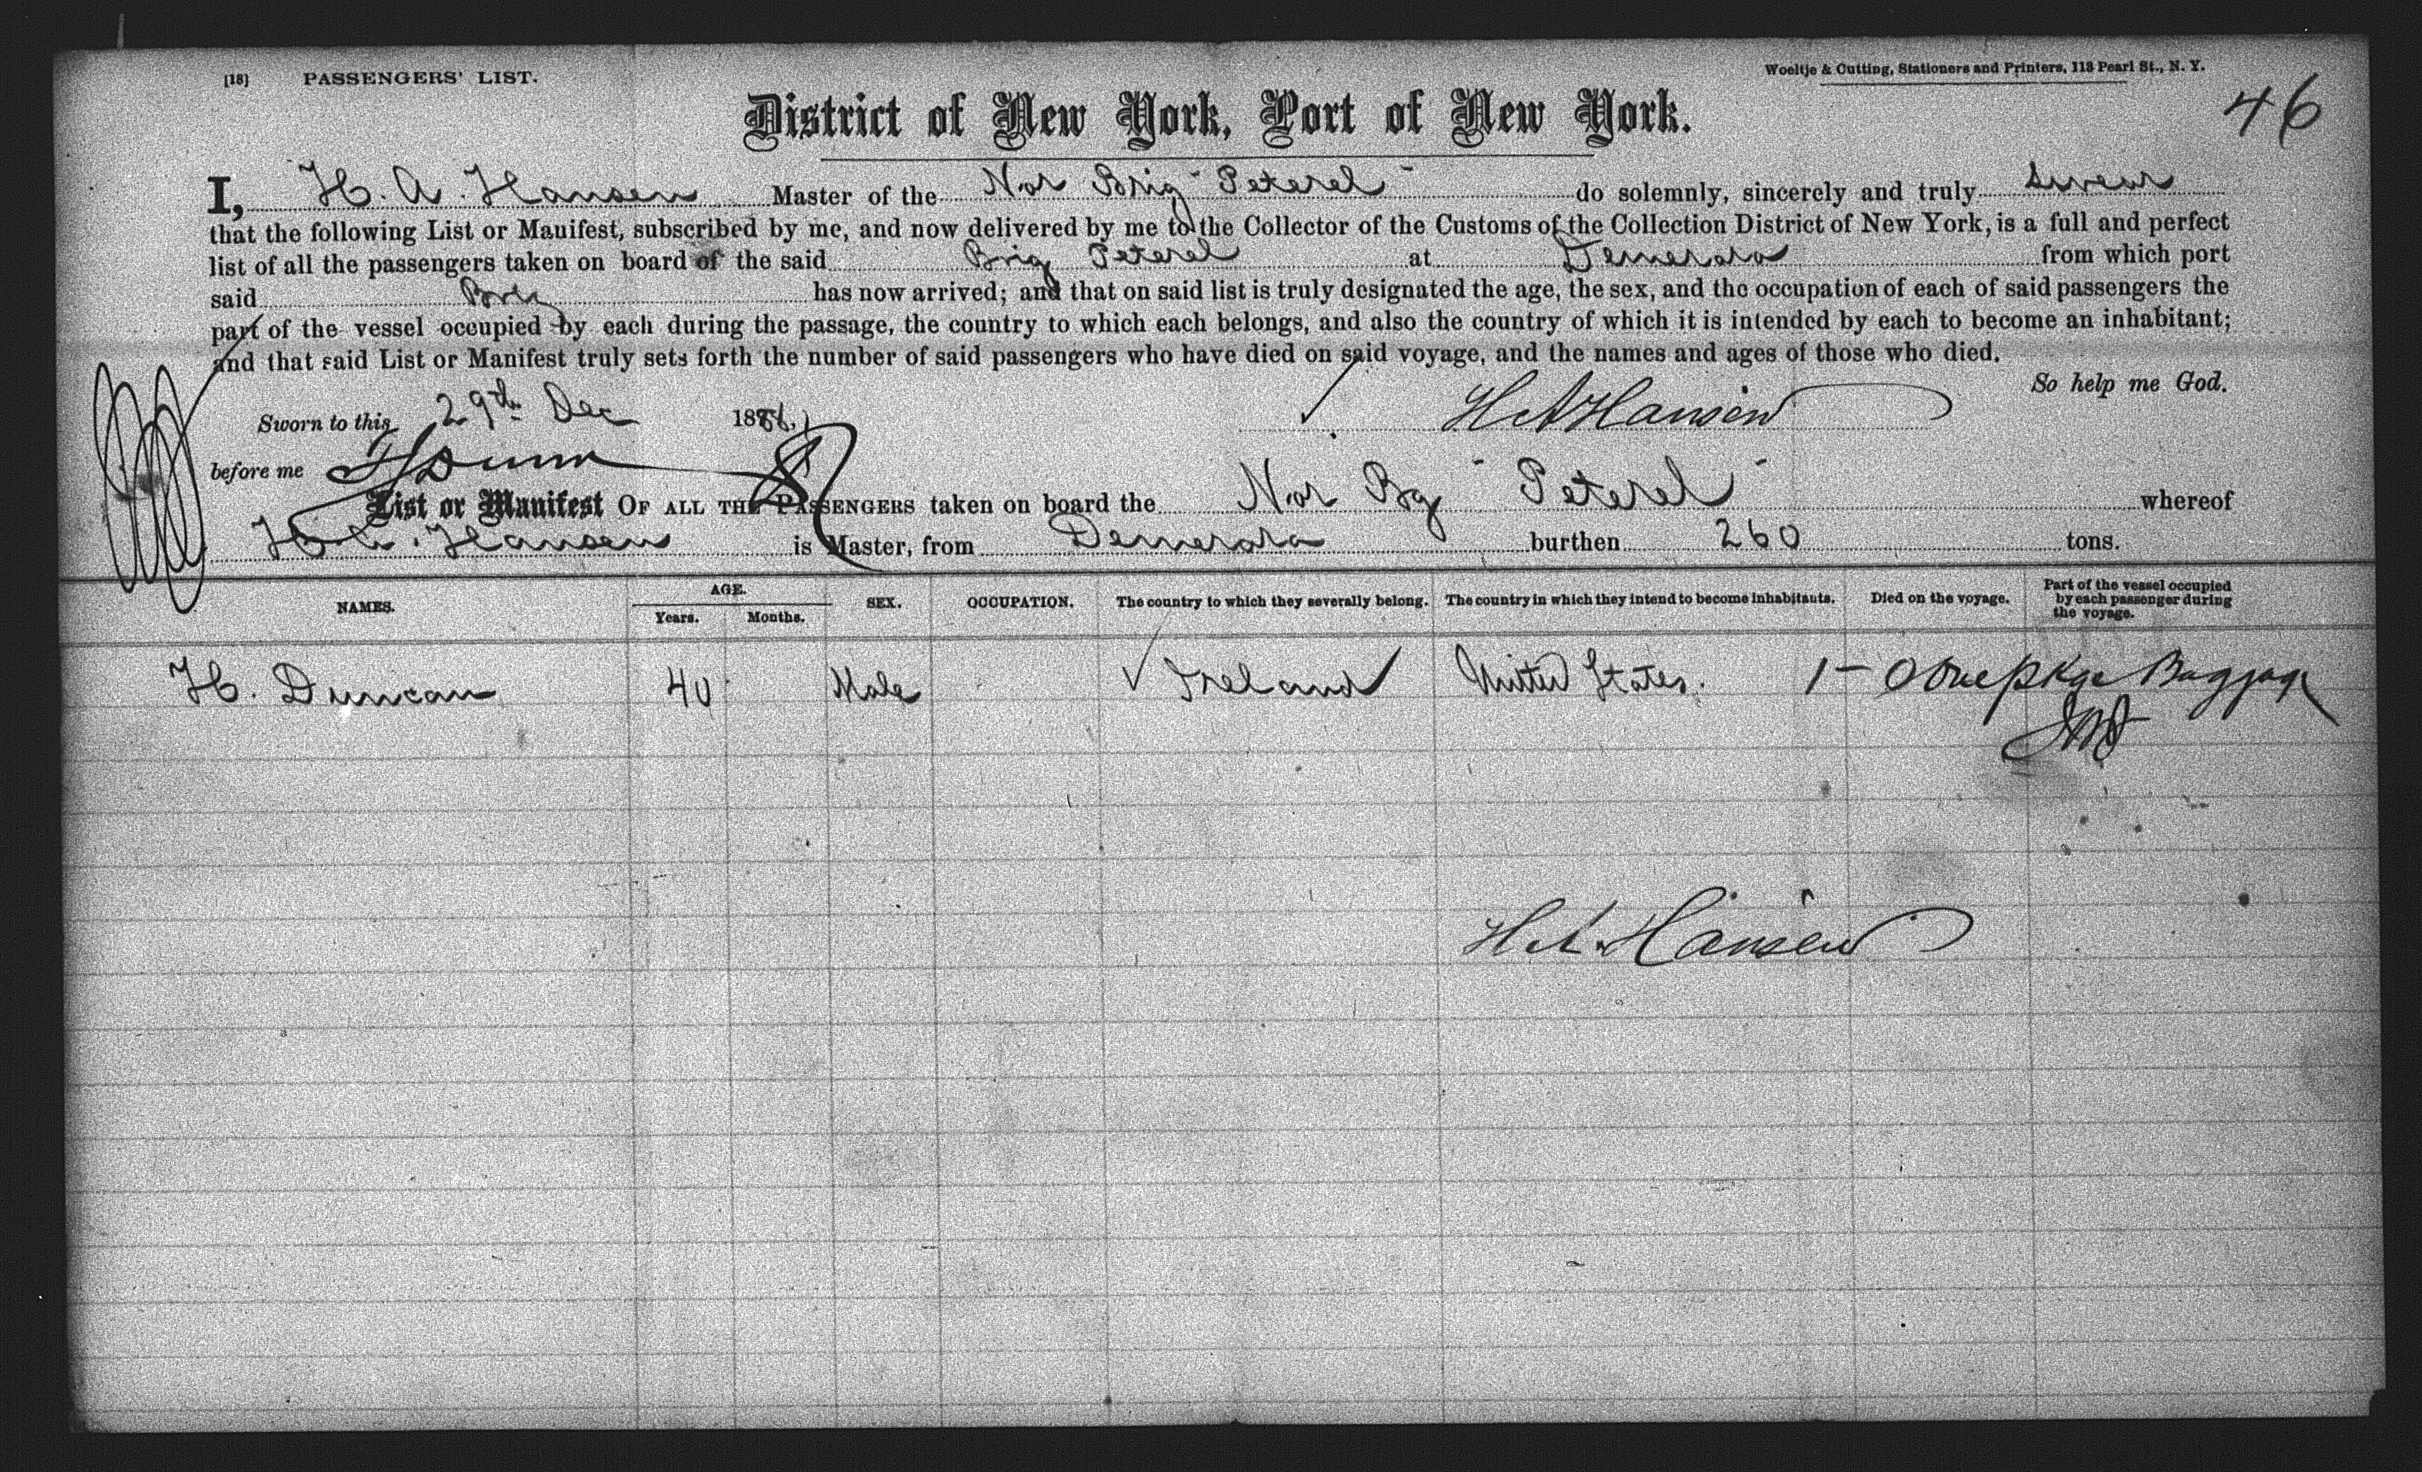 [18] PASSENGERS' LIST.
Woeltje & Cutting, Stationers and Printers, 118 Pearl St., N. Y.
46
District of New York, Port of New York.
I, H. A. Hansen Master of the Nor Brig "Peterel" do solemnly, sincerely and truly swear
that the following List or Manifest, subscribed by me, and now delivered by me to the Collector of the Customs of the Collection District of New York, is a full and perfect
list of all the passengers taken on board of the said Brig Peterel at Demerara from which port
said has now arrived; and that on said list is truly designated the age, the sex, and the occupation of each of said passengers the
part of the vessel occupied by each during the passage, the country to which each belongs, and also the country of which it is intended by each to become an inhabitant;
and that said List or Manifest truly sets forth the number of said passengers who have died on said voyage, and the names and ages of those who died.
So help me God.
Sworn to this 29th Dec 1886. H A Hansen
before me
List or Manifest OF ALL THE PASSENGERS taken on board the Nor Bg "Peterel" whereof
H. A. Hansen is Master, from Demerara burthen 260 tons.
NAMES. AGE. Years. Months. SEX. OCCUPATION. The country to which they severally belong. The country in which they intend to become inhabitants. Died on the voyage. Part of the vessel occupied by each passenger during the voyage.
H. Duncan 40 Male Ireland United States. 1 - 0 One pkge Baggage
H A. Hansen